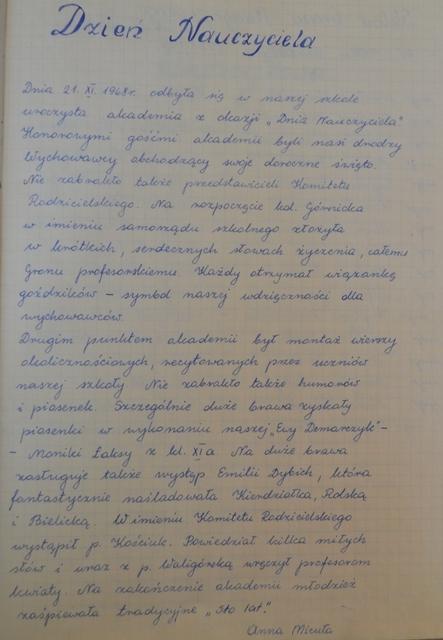 Dzień Nauczyciela
Dnia 21. XI. 1968r. odbyła się w naszej szkole
uroczysta akademia z okazji „Dnia Nauczyciela"
Honorowymi gośćmi akademii byli nasi drodzy
Wychowawcy obchodzący swoje doroczne święto.
Nie zabrakło także przedstawicieli Komitetu
Rodzicielskiego. Na rozpoczęcie kol. Górnicka
w imieniu samorządu szkolnego złożyła
w krótkich, serdecznych słowach życzenia, całemu
Gronu profesorskiemu. Każdy otrzymał wiązankę
goździków – symbol naszej wdzięczności dla
wychowawców.
Drugim punktem akademii był montaż wierszy
okolicznościowych, recytowanych przez uczniów
naszej szkoły. Nie zabrakło także humorów
i piosenek. Szczególnie duże brawa zyskały
piosenki w wykonaniu naszej „Ewy Demarczyk" –
– Moniki Łaksy z kl. XIa Na duże brawa
zasługuje także występ Emilii Dybich, która
fantastycznie naśladowała Kierdziołka, Rolską
i Bielicką. W imieniu Komitetu Rodzicielskiego
wystąpił p. Kościuk. Powiedział kilka miłych
słów i wraz z p. Waligórską wręczył profesorom
kwiaty. Na zakończenie akademii młodzież
zaśpiewała tradycyjne „Sto lat."
Anna Micuta